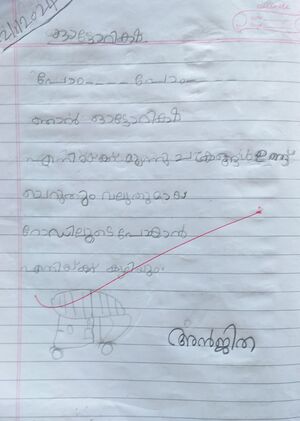 2/1/2024
ഓട്ടോറിക്ഷ
പോം---- പോം-
ഞാൻ ഓട്ടോറിക്ഷ
എനിക്ക് മൂന്നു ചക്രങ്ങൾ ഉണ്ട്
ചെറുതും വലുതുമായ
റോഡിലൂടെ പോകാൻ
എനിയ്ക്ക് കഴിയും.
അൻജിത